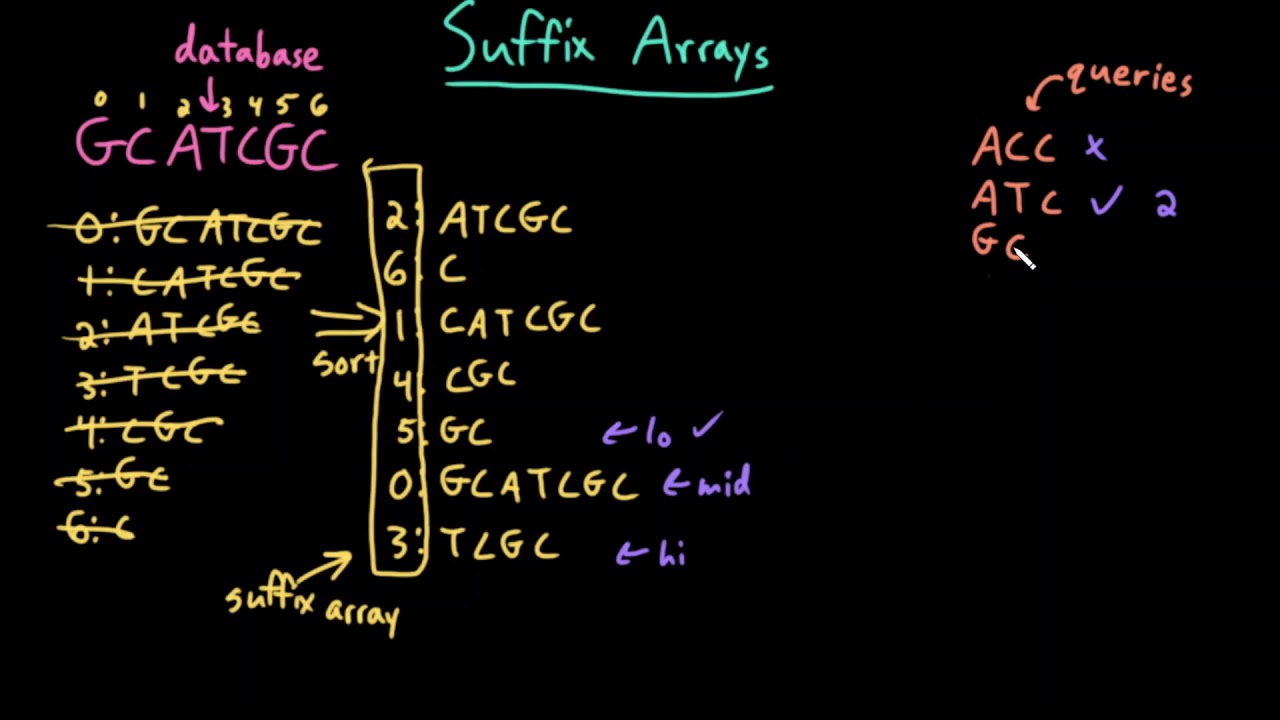 Suffix Arrays
database
0 1 2 3 4 5 6
GCATCGC
0: GCATCGC
1: CATCGC
2: ATCGC
3: TCGC
4: CGC
5: GC
6: C
sort
2: ATCGC
6: C
1: CATCGC
4: CGC
5: GC ← lo ✓
0: GCATCGC ← mid
3: TCGC ← hi
suffix array
queries
ACC x
ATC ✓ 2
GC